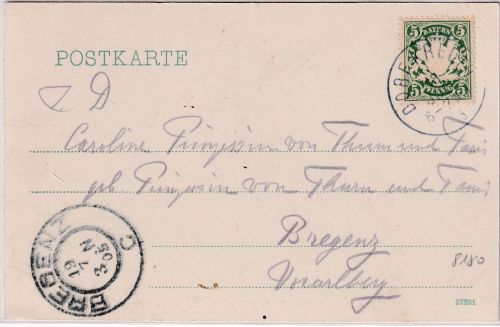 POSTKARTE
5 BAYERN 5
5 PFENNIG 5
Caroline Prinzessin von Thurn und Taxis
geb Prinzessin von Thurn und Taxis
Bregenz
Vorarlberg
8180
57231
BREGENZ